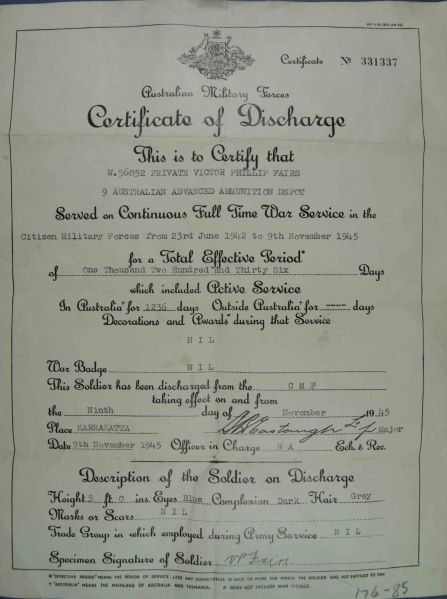 Certificate No 331337
Australian Military Forces
Certificate of Discharge
This is to Certify that
W.56052 PRIVATE VICTOR PHILLIP FAIRS
9 AUSTRALIAN ADVANCED AMMUNITION DEPOT
Served on Continuous Full Time War Service in the
Citizen Military Forces from 23rd June 1942 to 9th November 1945
for a Total Effective Period*
of One Thousand Two Hundred and Thirty Six Days
which included Active Service
In Australia for 1236 days Outside Australia for ---- days
Decorations and Awards during that Service
NIL
War Badge NIL
This Soldier has been discharged from the C M F
taking effect on and from
the Ninth day of November 1945
Place KARRAKATTA Major
Date 9th November 1945 Officer in Charge W A Ech. & Rec.
Description of the Soldier on Discharge
Height 5 ft 0 ins. Eyes Blue Complexion Dark Hair Grey
Marks or Scars NIL
Trade Group in which employed during Army Service NIL
Specimen Signature of Soldier VP Fairs
* "EFFECTIVE PERIOD" MEANS THE PERIOD OF SERVICE, LESS ANY CONSECUTIVE 21 DAYS OR MORE FOR WHICH THE SOLDIER WAS NOT ENTITLED TO PAY
"AUSTRALIA" MEANS THE MAINLAND OF AUSTRALIA AND TASMANIA. DOES NOT INCLUDE WAR MEDALS.
176-85